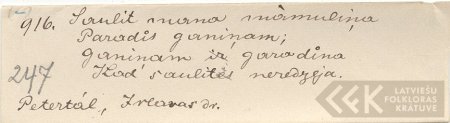 916. Saulit mana māmuliņa
Parādis ganiņam;
Ganiņam ir garadina
Kad saulītes neredzēja.
247
Petertāl, Irlavas dr.
LATVIEŠU
FOLKLORAS
KRĀTUVE